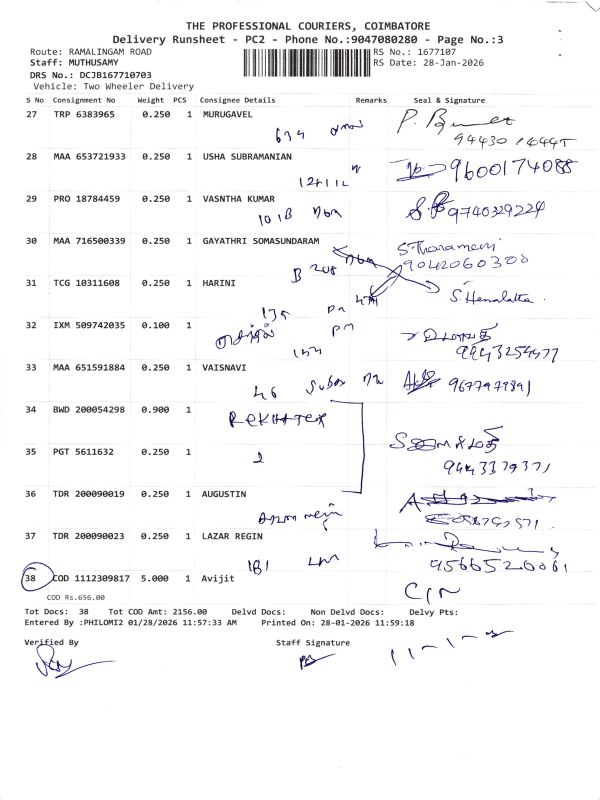 THE PROFESSIONAL COURIERS, COIMBATORE
Delivery Runsheet - PC2 - Phone No.:9047080280 - Page No.:3
Route: RAMALINGAM ROAD RS No.: 1677107
Staff: MUTHUSAMY RS Date: 28-Jan-2026
DRS No.: DCJB167710703
Vehicle: Two Wheeler Delivery
S No Consignment No Weight PCS Consignee Details Remarks Seal & Signature
27 TRP 6383965 0.250 1 MURUGAVEL
28 MAA 653721933 0.250 1 USHA SUBRAMANIAN
9600174088
29 PRO 18784459 0.250 1 VASNTHA KUMAR
101B 9740329224
30 MAA 716500339 0.250 1 GAYATHRI SOMASUNDARAM
B 208 9042060308
31 TCG 10311608 0.250 1 HARINI
S.Hemalatha.
135
32 IXM 509742035 0.100 1
PM
9943254977
33 MAA 651591884 0.250 1 VAISNAVI
46
34 BWD 200054298 0.900 1
35 PGT 5611632 0.250 1
2
9443379371
36 TDR 200090019 0.250 1 AUGUSTIN
37 TDR 200090023 0.250 1 LAZAR REGIN
181 9566520061
38 COD 1112309817 5.000 1 Avijit
COD Rs.656.00
C/N
Tot Docs: 38 Tot COD Amt: 2156.00 Delvd Docs: Non Delvd Docs: Delvy Pts:
Entered By :PHILOMI2 01/28/2026 11:57:33 AM Printed On: 28-01-2026 11:59:18
Verified By Staff Signature